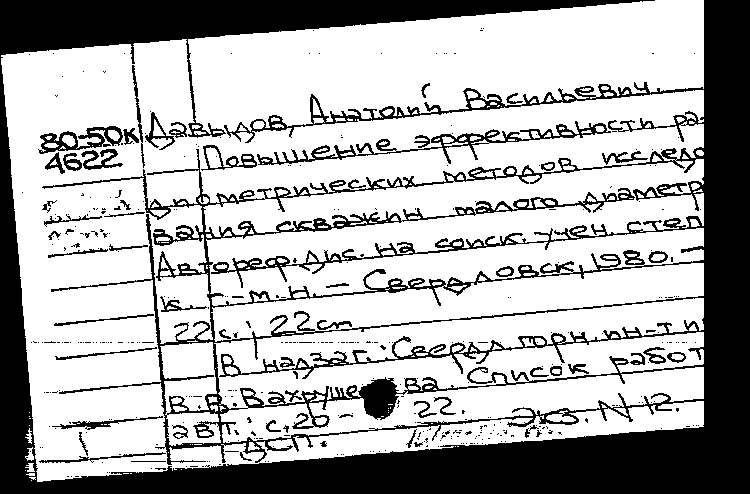 80-50к
4622.
Давыдов, Анатолий Васильевич.
Повышение эффективности ра-
диометрических методов исследо
вания скважин малого диаметр
Автореф. дис. на соиск. учен. степ
к. г.-м. н. — Свердловск, 1980. —
22 с.; 22 см.
В надзаг.: Свердл горн. ин-т и
В. В. Вахруше ва. Список работ
авт.: с. 20 - 22.
Экз. N 12.
ДСП.